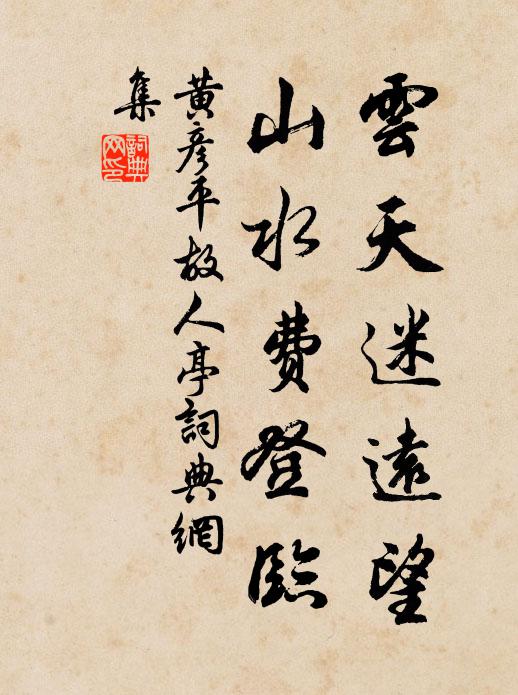 雲天迷遠望
山水費登臨
黃彥平故人亭詞典網
集
詞典網印